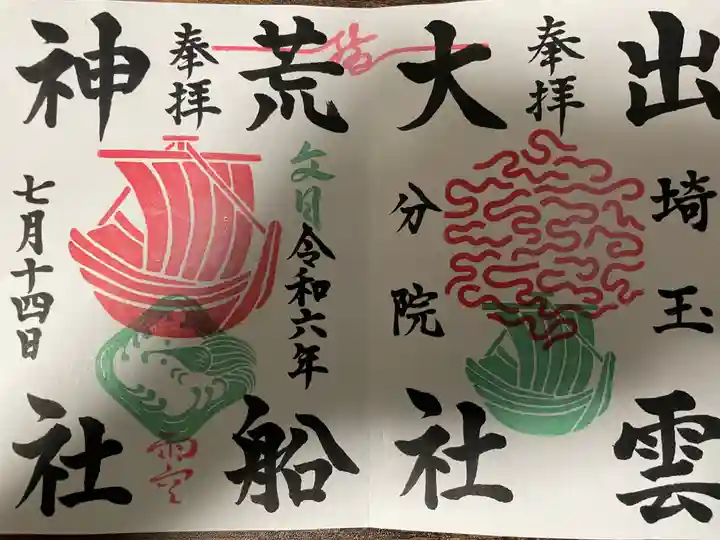 出雲
埼玉
奉拝
大社
分院
荒船
奉拝
文月
令和六年
神社
七月十四日